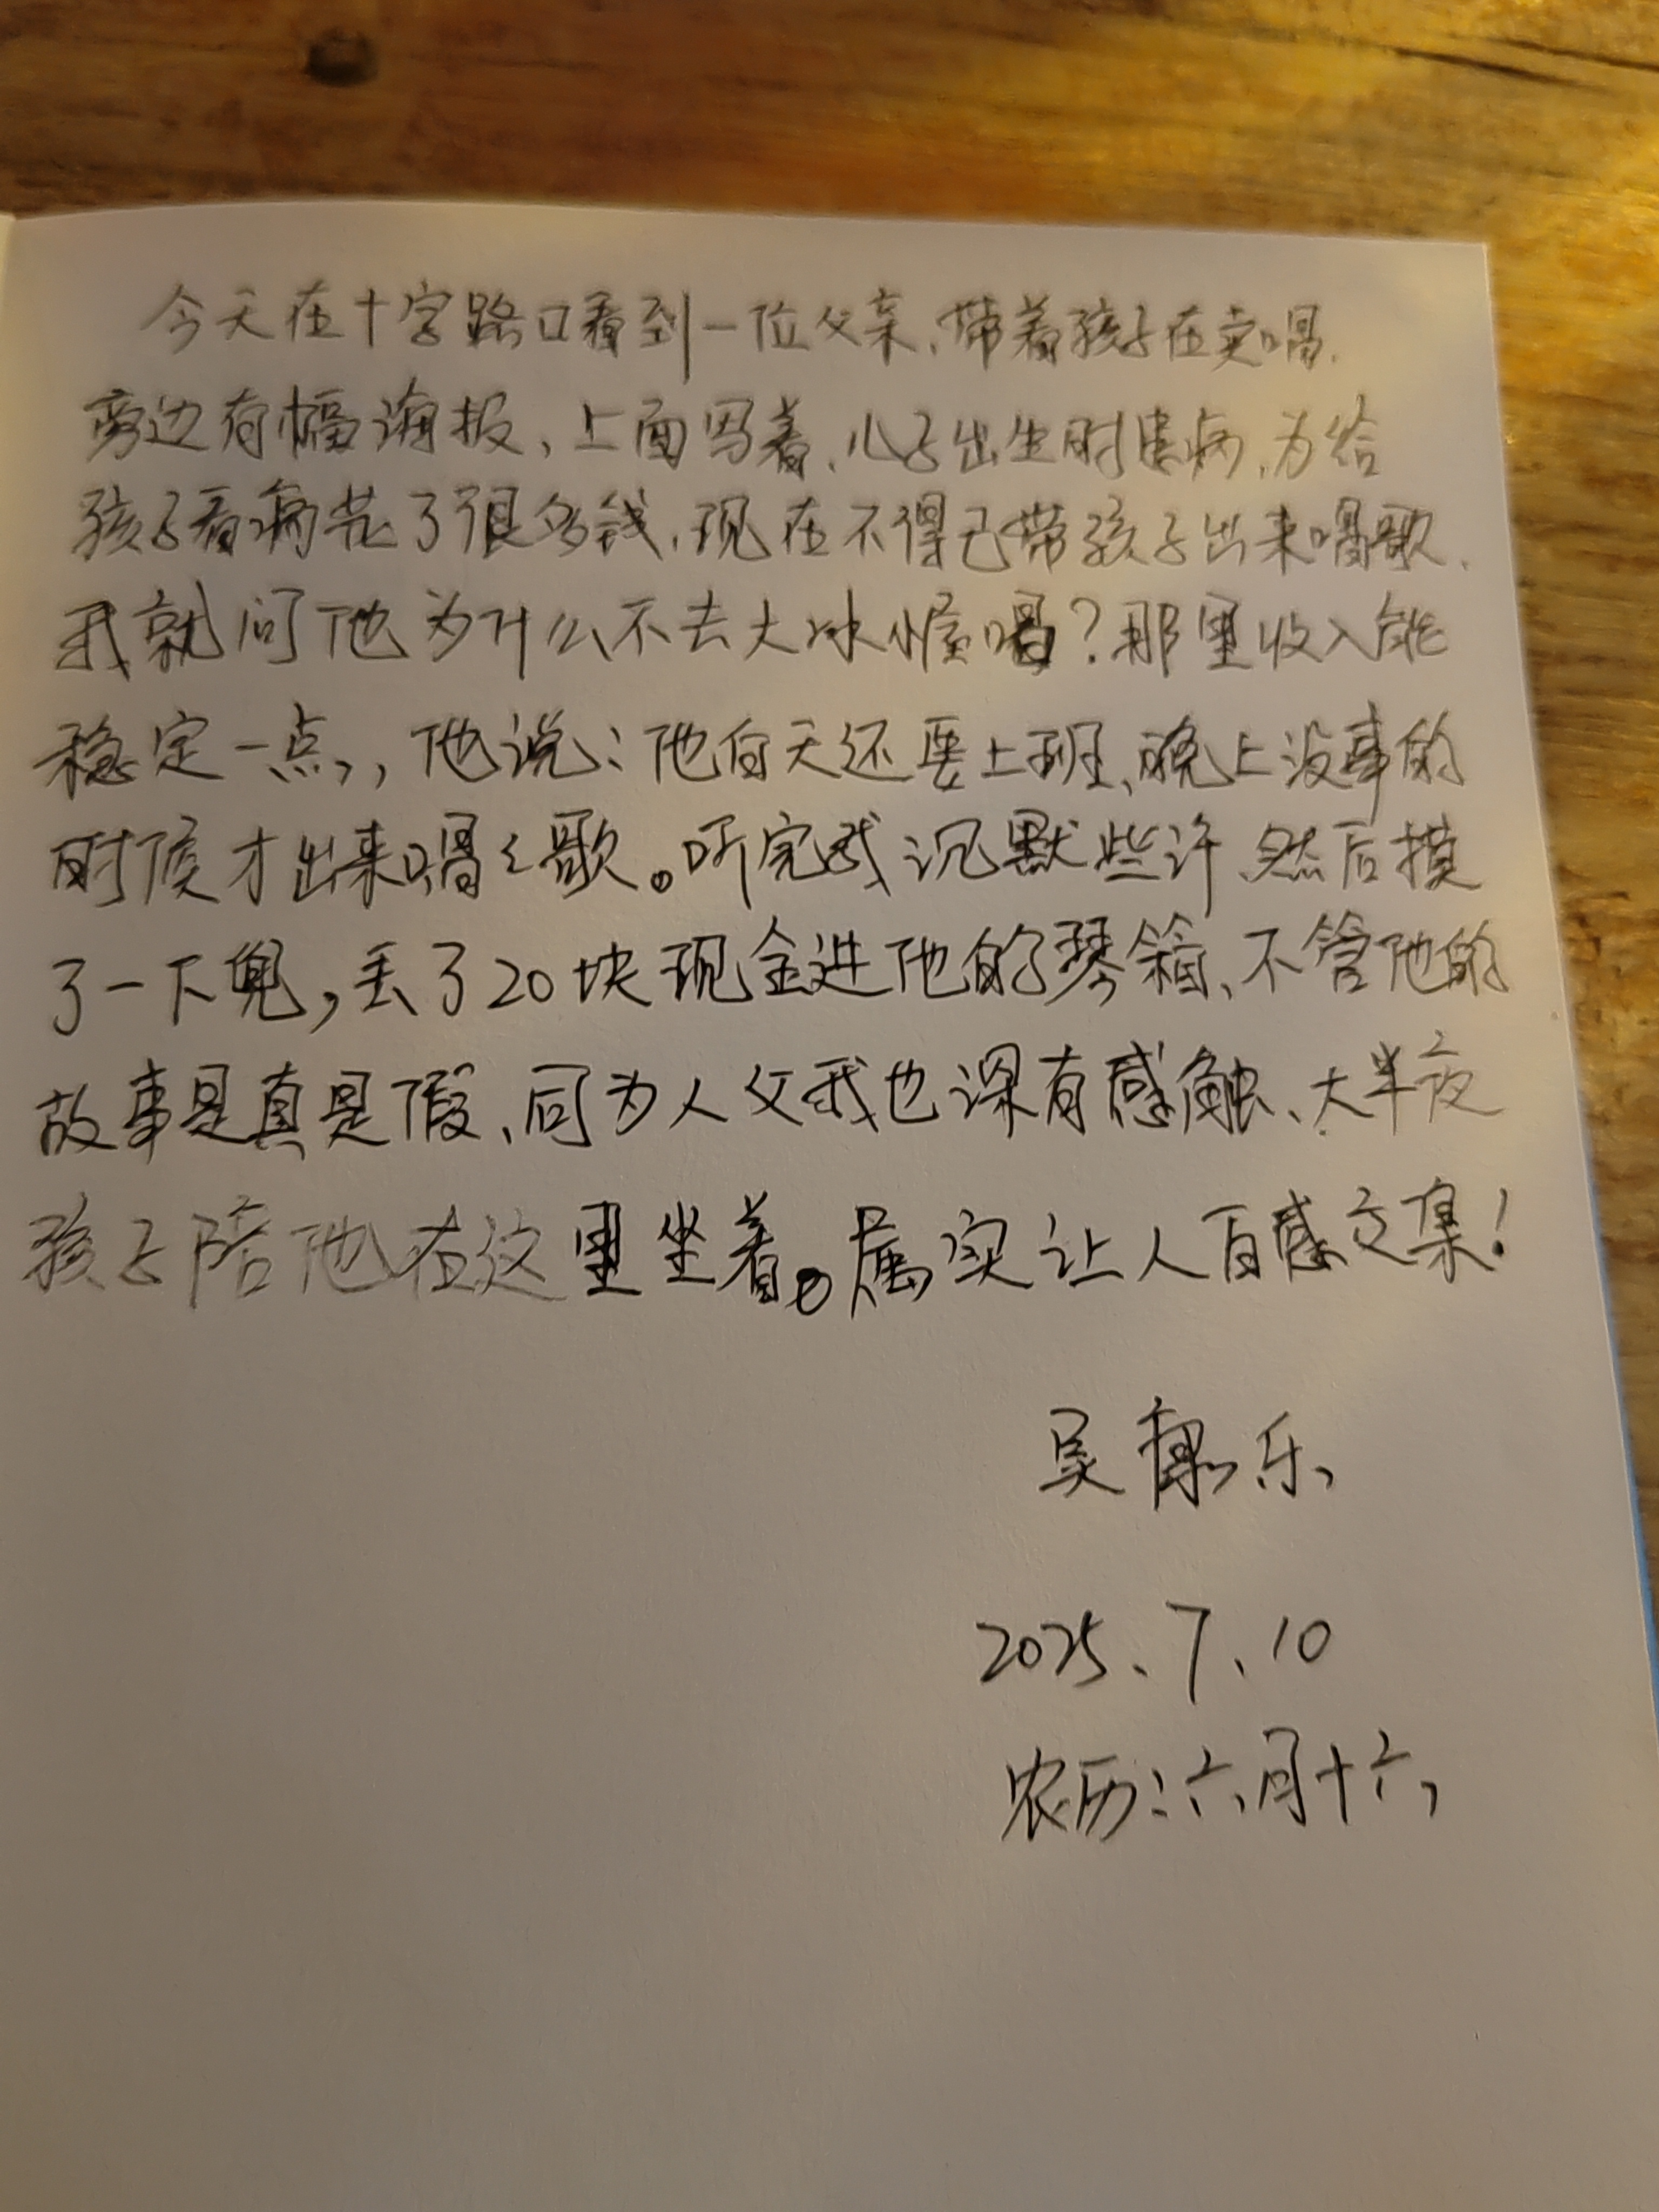 今天在十字路口看到一位父亲、带着孩子在卖唱.
旁边有幅海报、上面写着、儿子出生时患病、为给
孩子看病花了很多钱、现在不得已带孩子出来唱歌.
我就问他为什么不去大冰憧唱?那里收入能
稳定一点,,他说:他白天还要上班、晚上没事的
时候才出来唱々歌。听完我沉默些许 然后摸
了一下兜,丢了20块现金进他的琴箱、不管他的
故事是真是假、同为人父我也深有感触、大半夜
孩子陪他在这里坐着。属实让人百感交集!
吴 乐
2025、7、10
农历:六月十六,